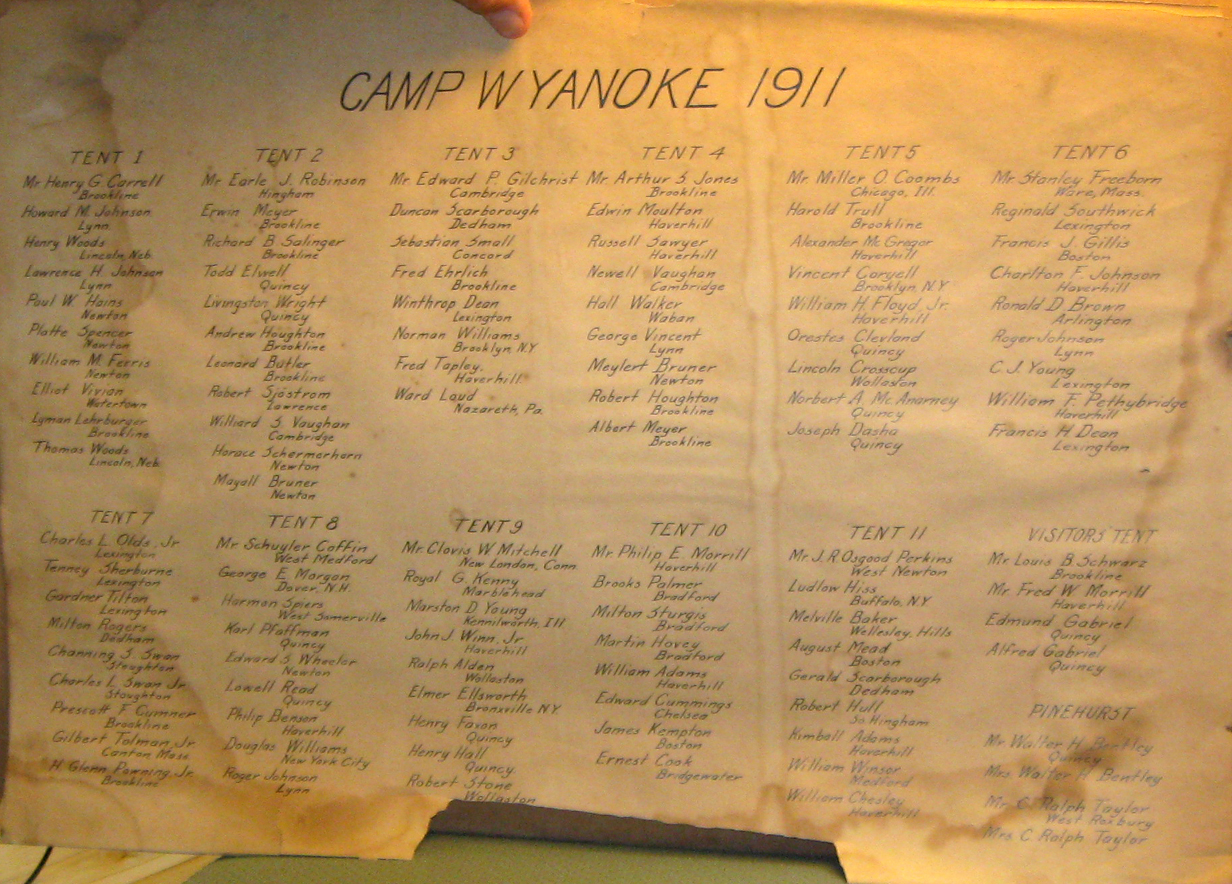 CAMP WYANOKE 1911
TENT 1
Mr. Henry G. Carrell
Brookline
Howard M. Johnson
Lynn
Henry Woods
Lincoln, Neb.
Lawrence H. Johnson
Lynn
Paul W. Hains
Newton
Platte Spencer
Newton
William M. Ferris
Newton
Elliot Vivian
Watertown
Lyman Lehrburger
Brookline
Thomas Woods
Lincoln, Neb.
TENT 2
Mr Earle J. Robinson
Hingham
Erwin Meyer
Brookline
Richard B Salinger
Brookline
Todd Elwell
Quincy
Livingston Wright
Quincy
Andrew Houghton
Brookline
Leonard Butler
Brookline
Robert Sjöstrom
Lawrence
Williard S Vaughan
Cambridge
Horace Schermerhorn
Newton
Mayall Bruner
Newton
TENT 3
Mr. Edward P. Gilchrist
Cambridge
Duncan Scarborough
Dedham
Sebastian Small
Concord
Fred Ehrlich
Brookline
Winthrop Dean
Lexington
Norman Williams
Brooklyn, N.Y
Fred Tapley.
Haverhill.
Ward Loud
Nazareth, Pa.
TENT 4
Mr. Arthur S. Jones
Brookline
Edwin Moulton
Haverhill
Russell Sawyer
Haverhill
Newell Vaughan
Cambridge
Hall Walker
Waban
George Vincent
Lynn
Meylert Bruner
Newton
Robert Houghton
Brookline
Albert Meyer
Brookline
TENT 5
Mr. Miller O Coombs
Chicago, Ill.
Harold Trull
Brookline
Alexander Mc Gregor
Haverhill
Vincent Coryell
Brooklyn, N.Y
William H. Floyd, Jr.
Haverhill
Orestes Clevland
Quincy
Lincoln Crosscup
Wollaston
Norbert A. Mc Anarney
Quincy
Joseph Dasha
Quincy
TENT 6
Mr Stanley Freeborn
Ware, Mass.
Reginald Southwick
Lexington
Francis J. Gillis
Boston
Charlton F. Johnson
Haverhill
Ronald D. Brown
Arlington
Roger Johnson
Lynn
C.J. Young
Lexington
William F. Pethybridge
Haverhill
Francis H. Dean
Lexington
TENT 7
Charles L. Olds, Jr
Lexington
Tenney Sherburne
Lexington
Gardner Tilton
Lexington
Milton Rogers
Dedham
Channing S. Swan
Stoughton
Charles L. Swan Jr.
Stoughton
Prescott F Cumner
Brookline
Gilbert Tolman, Jr
Canton Mass.
H. Glenn Jr.
Brookline
TENT 8
Mr Schuyler Coffin
West Medford
George E Morgan
Dover, N.H.
Harmon Spiers
West Somerville
Karl Pfaffman
Quincy
Edward S Wheeler
Newton
Lowell Read
Quincy
Philip Benson
Haverhill
Douglas Williams
New York City
Roger Johnson
Lynn
TENT 9
Mr. Clovis W Mitchell
New London, Conn.
Royal G. Kenny
Marblehead
Marston D Young
Kennilworth, Ill
John J Winn, Jr.
Haverhill
Ralph Alden
Wollaston
Elmer Ellsworth
Bronxville NY
Henry Faxon
Quincy
Henry Hall
Quincy
Robert Stone
Wollaston
TENT 10
Mr. Philip E. Morrill
Haverhill
Brooks Palmer
Bradford
Milton Sturgis
Bradford
Martin Hovey
Bradford
William Adams
Haverhill
Edward Cummings
Chelsea
James Kempton
Boston
Ernest Cook
Bridgewater
TENT 11
Mr. J.R. Osgood Perkins
West Newton
Ludlow Hiss
Buffalo, N.Y
Melville Baker
Wellesley, Hills
August Mead
Boston
Gerald Scarborough
Dedham
Robert Hull
So. Hingham
Kimball Adams
Haverhill
William Winsor
Medford
William Chesley
Haverhill
VISITORS' TENT
Mr Louis B. Schwarz
Brookline
Mr. Fred W. Morrill
Haverhill
Edmund Gabriel
Quincy
Alfred Gabriel
Quincy
PINEHURST
Mr. Walter H. Bentley
Quincy
Mrs. Walter H Bentley
Mr C. Ralph Taylor
West Roxbury
Mrs C. Ralph Taylor